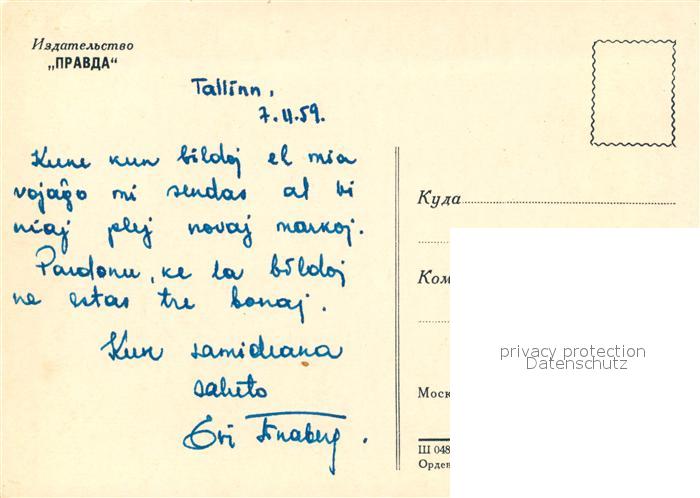 Издательство
„ПРАВДА“
Tallinn,
7.II.59.
Kune kun bildoj el mia
vojaĝo mi sendas al vi
niaj plej novaj markoj.
Pardonu, ke la bildoj
ne estas tre bonaj.
Kun samideana
saluto
Evi
Куда
Ком
Моск
Ш 048
Орден
privacy protection
Datenschutz